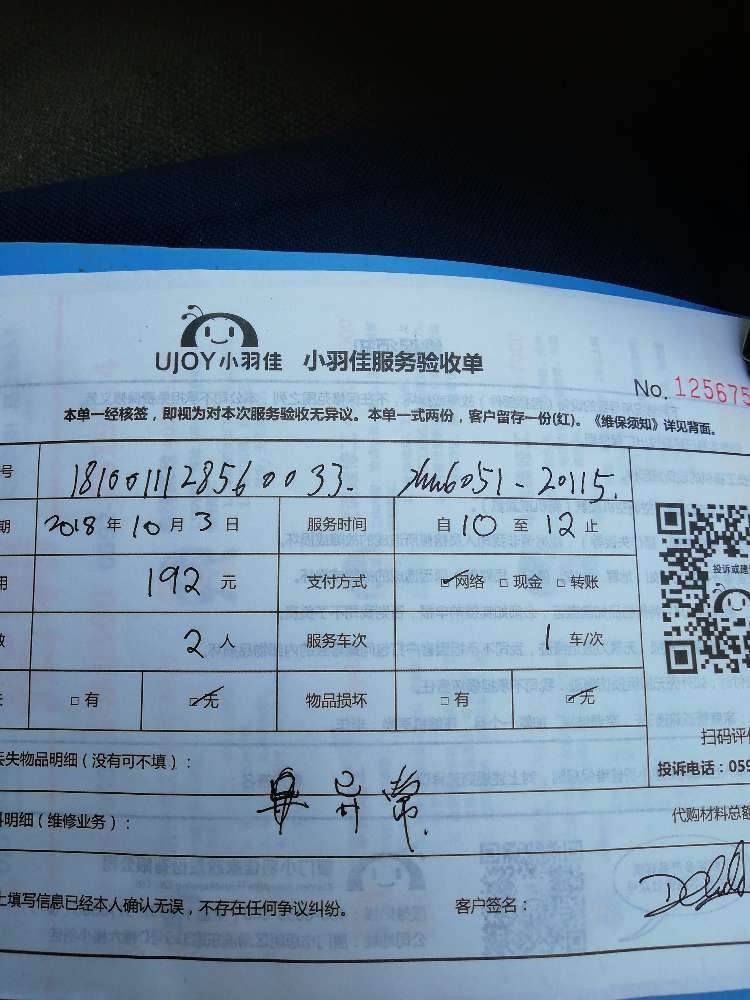 UJOY小羽佳 小羽佳服务验收单
No. 125675
本单一经核签，即视为对本次服务验收无异议。本单一式两份，客户留存一份(红)。《维保须知》详见背面。
号 1810011128560033.
期 2018 年 10 月 3 日 服务时间 自 10 至 12 止
投诉或建
用 192 元 支付方式 ☑网络 □现金 □转账
数 2 人 服务车次 1 车/次
□有 ☑无 物品损坏 □有 ☑无
扫码评价
丢失物品明细（没有可不填）：
投诉电话：059
异常
明细（维修业务）：
代购材料总额
上填写信息已经本人确认无误，不存在任何争议纠纷。 客户签名：